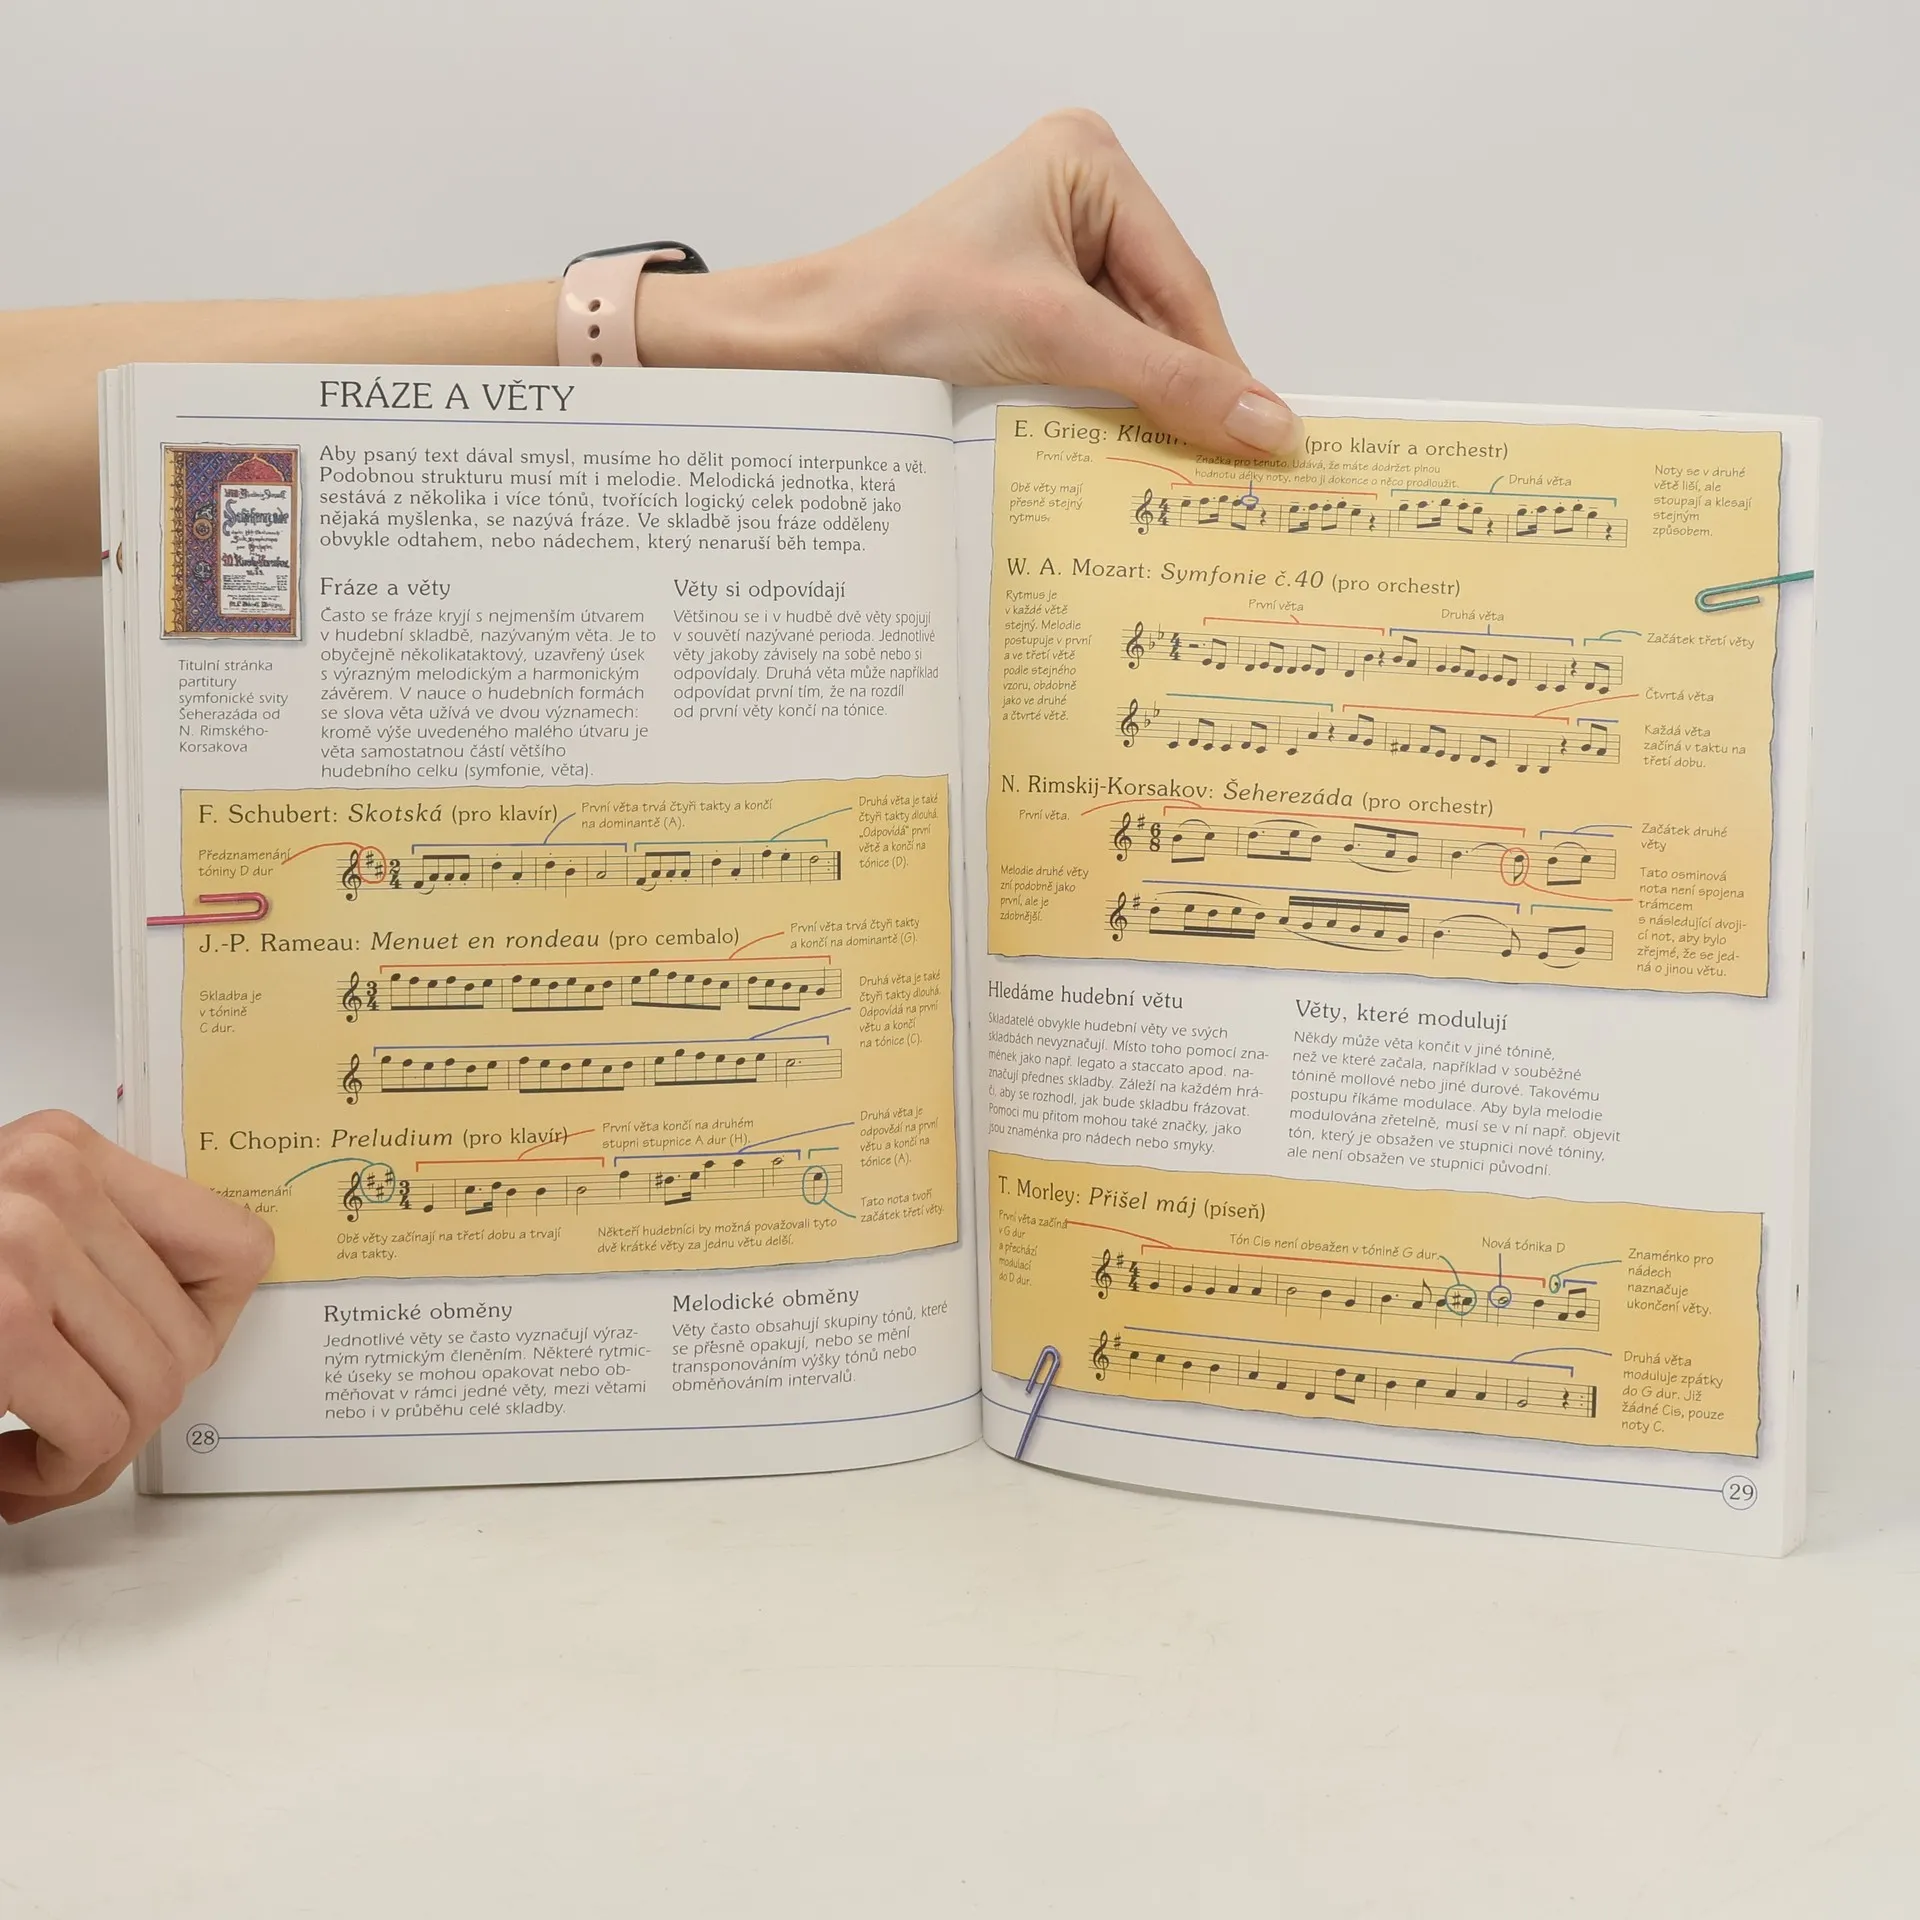 FRÁZE A VĚTY
Aby psaný text dával smysl, musíme ho dělit pomocí interpunkce a vět.
Podobnou strukturu musí mít i melodie. Melodická jednotka, která
sestává z několika i více tónů, tvořících logický celek podobně jako
nějaká myšlenka, se nazývá fráze. Ve skladbě jsou fráze odděleny
obvykle odtahem, nebo nádechem, který nenaruší běh tempa.
Titulní stránka
partitury
symfonické svity
Šeherazáda od
N. Rimského-
Korsakova
Fráze a věty
Často se fráze kryjí s nejmenším útvarem
v hudební skladbě, nazývaným věta. Je to
obyčejně několikataktový, uzavřený úsek
s výrazným melodickým a harmonickým
závěrem. V nauce o hudebních formách
se slova věta užívá ve dvou významech:
kromě výše uvedeného malého útvaru je
věta samostatnou částí většího
hudebního celku (symfonie, věta).
Věty si odpovídají
Většinou se i v hudbě dvě věty spojují
v souvětí nazývané perioda. Jednotlivé
věty jakoby závisely na sobě nebo si
odpovídaly. Druhá věta může například
odpovídat první tím, že na rozdíl
od první věty končí na tónice.
F. Schubert: Skotská (pro klavír)
První věta trvá čtyři takty a končí
na dominantě (A).
Druhá věta je také
čtyři takty dlouhá.
„Odpovídá" první
větě a končí na
tónice (D).
Předznamenání
tóniny D dur
J.-P. Rameau: Menuet en rondeau (pro cembalo)
První věta trvá čtyři takty
a končí na dominantě (G).
Skladba je
v tónině
C dur.
Druhá věta je také
čtyři takty dlouhá.
Odpovídá na první
větu a končí
na tónice (C).
F. Chopin: Preludium (pro klavír)
První věta končí na druhém
stupni stupnice A dur (H).
Druhá věta je
odpovědí na první
větu a končí na
tónice (A).
edznamenání
A dur.
Obě věty začínají na třetí dobu a trvají
dva takty.
Někteří hudebníci by možná považovali tyto
dvě krátké věty za jednu větu delší.
Tato nota tvoří
začátek třetí věty.
Rytmické obměny
Jednotlivé věty se často vyznačují výraz-
ným rytmickým členěním. Některé rytmic-
ké úseky se mohou opakovat nebo ob-
měňovat v rámci jedné věty, mezi větami
nebo i v průběhu celé skladby.
Melodické obměny
Věty často obsahují skupiny tónů, které
se přesně opakují, nebo se mění
transponováním výšky tónů nebo
obměňováním intervalů.
28
E. Grieg: Klavír (pro klavír a orchestr)
První věta.
Značka pro tenuto. Udává, že máte dodržet plnou
hodnotu délky noty, nebo ji dokonce o něco prodloužit.
Druhá věta
Noty se v druhé
větě liší, ale
stoupají a klesají
stejným
způsobem.
Obě věty mají
přesně stejný
rytmus.
W. A. Mozart: Symfonie č.40 (pro orchestr)
Rytmus je
v každé větě
stejný. Melodie
postupuje v první
a ve třetí větě
podle stejného
vzoru, obdobně
jako ve druhé
a čtvrté větě.
První věta
Druhá věta
Začátek třetí věty
Čtvrtá věta
Každá věta
začíná v taktu na
třetí dobu.
N. Rimskij-Korsakov: Šeherezáda (pro orchestr)
První věta.
Začátek druhé
věty
Melodie druhé věty
zní podobně jako
první, ale je
zdobnější.
Tato osminová
nota není spojena
trámcem
s následující dvoji-
cí not, aby bylo
zřejmé, že se jed-
ná o jinou větu.
Hledáme hudební větu
Skladatelé obvykle hudební věty ve svých
skladbách nevyznačují. Místo toho pomocí zna-
mének jako např. legato a staccato apod. na-
značují přednes skladby. Záleží na každém hrá-
či, aby se rozhodl, jak bude skladbu frázovat.
Pomoci mu přitom mohou také značky, jako
jsou znaménka pro nádech nebo smyky.
Věty, které modulují
Někdy může věta končit v jiné tónině,
než ve které začala, například v souběžné
tónině mollové nebo jiné durové. Takovému
postupu říkáme modulace. Aby byla melodie
modulována zřetelně, musí se v ní např. objevit
tón, který je obsažen ve stupnici nové tóniny,
ale není obsažen ve stupnici původní.
T. Morley: Přišel máj (píseň)
První věta začíná
v G dur
a přechází
modulací
do D dur.
Tón Cis není obsažen v tónině G dur.
Nová tónika D
Znaménko pro
nádech
naznačuje
ukončení věty.
Druhá věta
moduluje zpátky
do G dur. Již
žádné Cis, pouze
noty C.
29